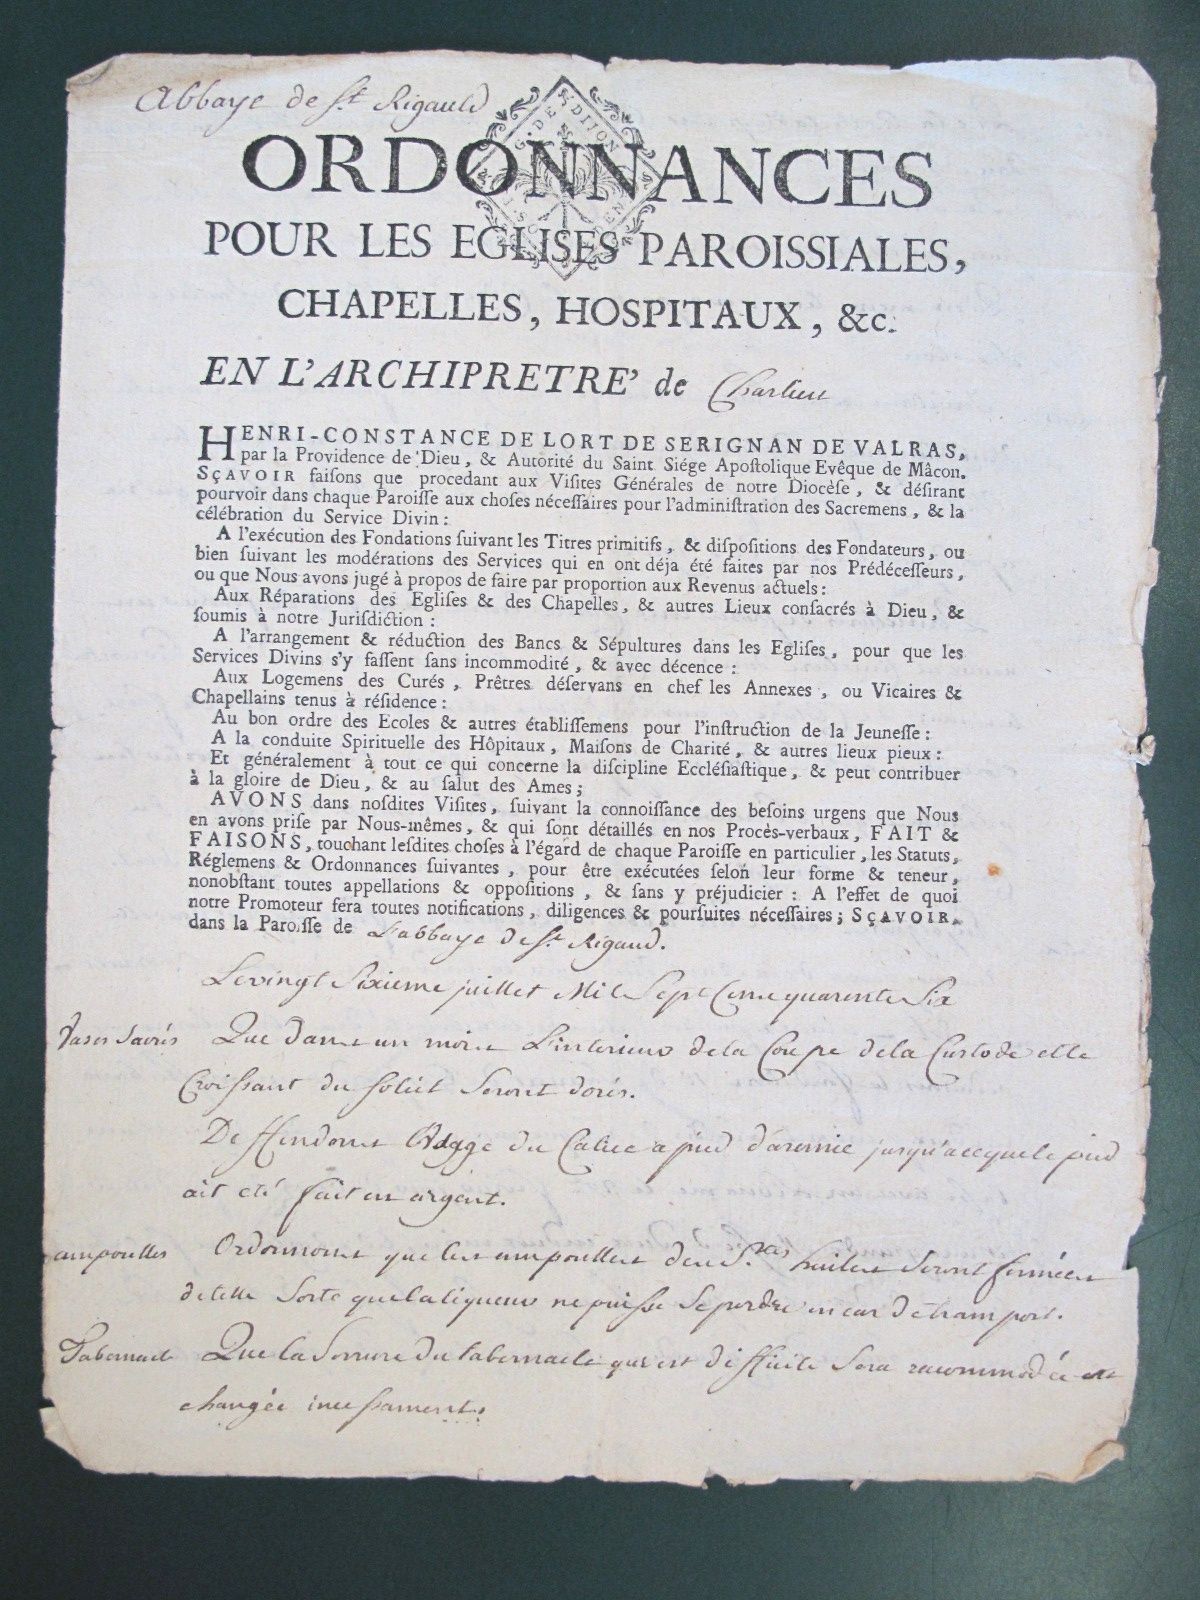 Abbaye de St Rigauld
G. DE DIJON
ORDONNANCES
POUR LES EGLISES PAROISSIALES,
CHAPELLES, HOSPITAUX, &c.
EN L'ARCHIPRETRE' de Charlieu
HENRI-CONSTANCE DE LORT DE SERIGNAN DE VALRAS,
par la Providence de Dieu, & Autorité du Saint Siége Apostolique Evêque de Mâcon.
SÇAVOIR faisons que procedant aux Visites Générales de notre Diocèse, & désirant
pourvoir dans chaque Paroisse aux choses nécessaires pour l'administration des Sacremens, & la
célébration du Service Divin:
A l'exécution des Fondations suivant les Titres primitifs, & dispositions des Fondateurs, ou
bien suivant les modérations des Services qui en ont déja été faites par nos Prédécesseurs,
ou que Nous avons jugé à propos de faire par proportion aux Revenus actuels:
Aux Réparations des Eglises & des Chapelles, & autres Lieux consacrés à Dieu, &
soumis à notre Jurisdiction:
A l'arrangement & réduction des Bancs & Sépultures dans les Eglises, pour que les
Services Divins s'y fassent sans incommodité, & avec décence:
Aux Logemens des Curés, Prêtres déservans en chef les Annexes, ou Vicaires &
Chapellains tenus à résidence:
Au bon ordre des Ecoles & autres établissemens pour l'instruction de la Jeunesse:
A la conduite Spirituelle des Hôpitaux, Maisons de Charité, & autres lieux pieux:
Et généralement à tout ce qui concerne la discipline Ecclésiastique, & peut contribuer
à la gloire de Dieu, & au salut des Ames;
AVONS dans nosdites Visites, suivant la connoissance des besoins urgens que Nous
en avons prise par Nous-mêmes, & qui sont détaillés en nos Procès-verbaux, FAIT &
FAISONS, touchant lesdites choses à l'égard de chaque Paroisse en particulier, les Statuts,
Réglemens & Ordonnances suivantes, pour être exécutées selon leur forme & teneur,
nonobstant toutes appellations & oppositions, & sans y préjudicier: A l'effet de quoi
notre Promoteur fera toutes notifications, diligences & poursuites nécessaires; SÇAVOIR.
dans la Paroisse de L'abbaye de St Rigaud.
Le vingt Sixieme juillet Mil Sept Cens quarente Six
Vases Sacrés Que dans un mois L'interieur de la Coupe de la Custode et le
Croissant du soleil Seront dorés.
Deffendons L'usage du Calice a pied d'aremie jusqu'a ce que le pied
ait eté fait en argent.
ampoulles Ordonnons que les ampoulles des Stes huiles Seront fermées
de telle Sorte que la liqueur ne puisse Se perdre en cas de transport.
Tabernacle Que la Serrure du tabernacle qui est difficile Sera racommodée ou
changée incessament.